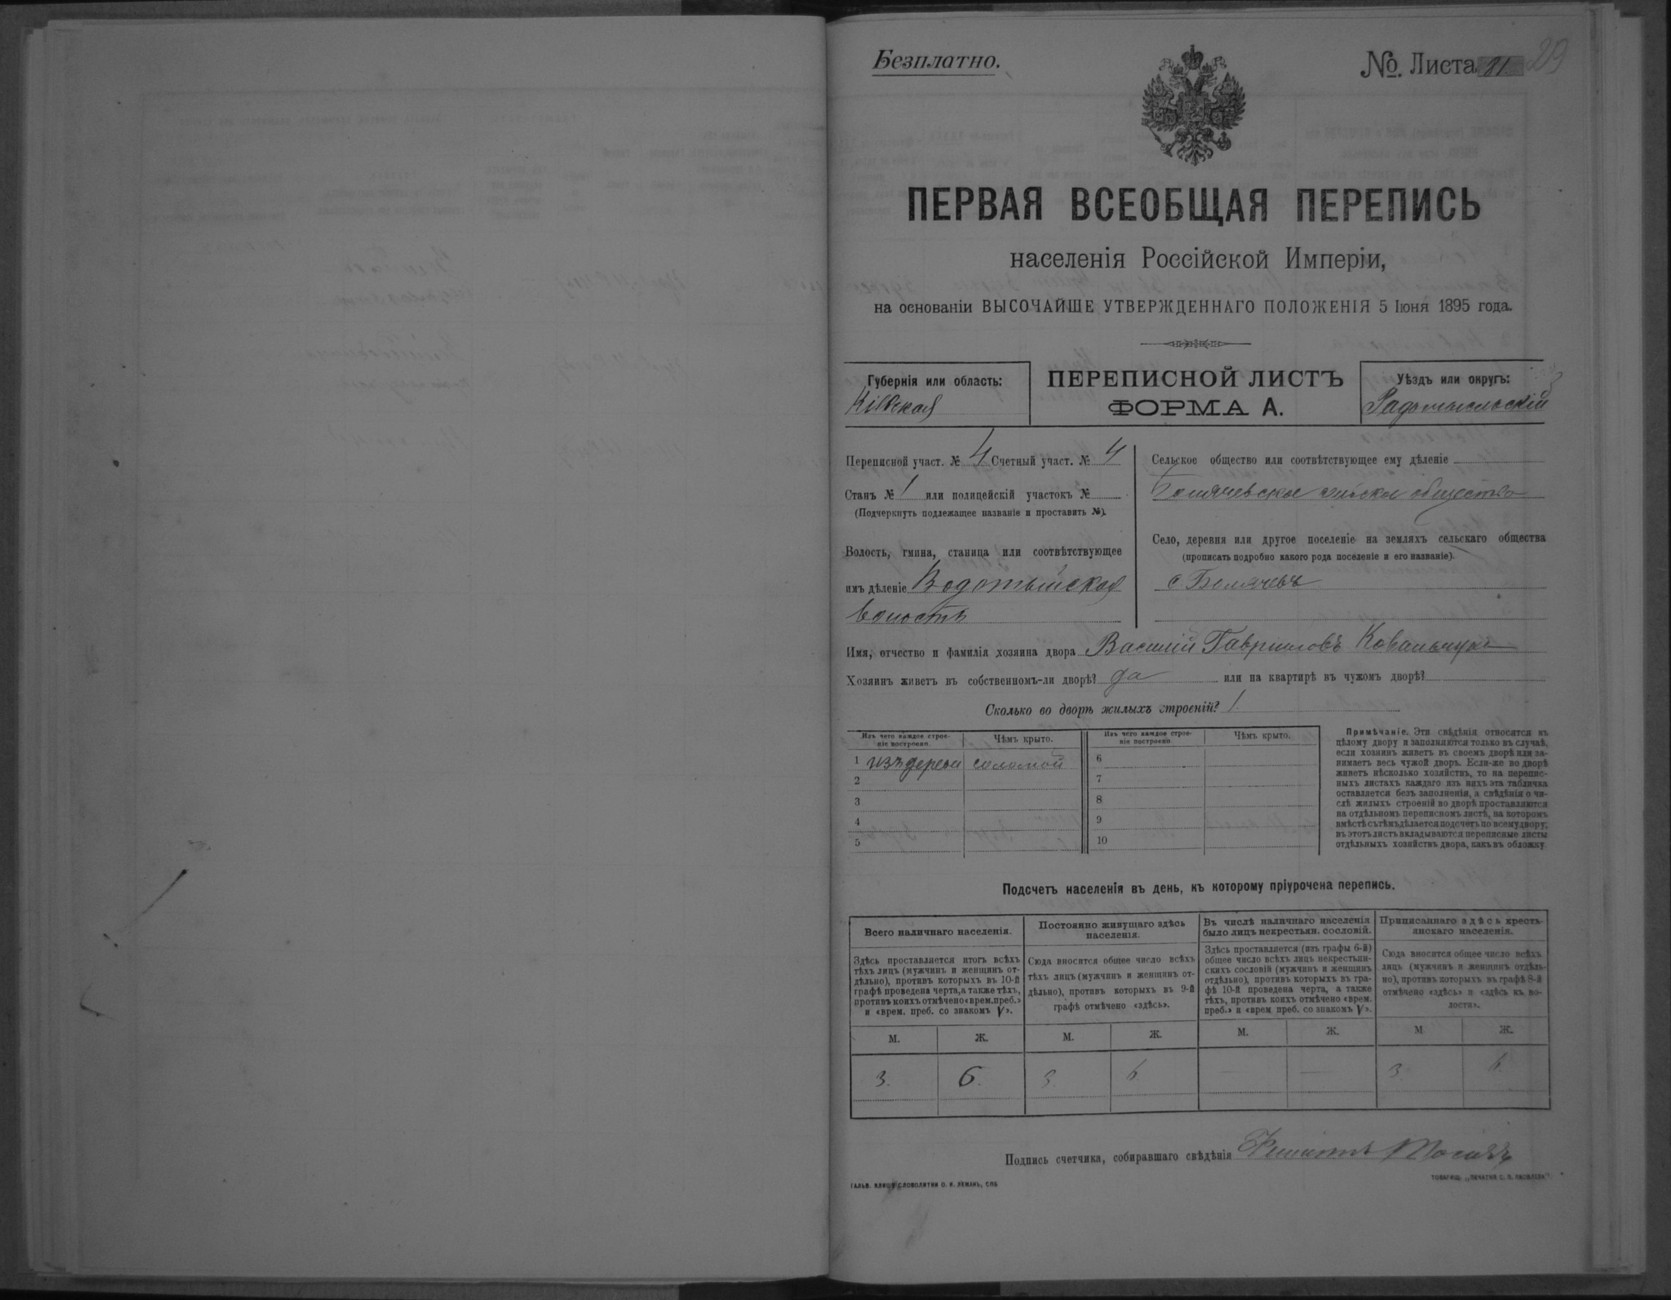 Безплатно.
№. Листа 11 29
ПЕРВАЯ ВСЕОБЩАЯ ПЕРЕПИСЬ
населенія Россійской Имперіи,
на основаніи ВЫСОЧАЙШЕ УТВЕРЖДЕННАГО ПОЛОЖЕНІЯ 5 Іюня 1895 года.
Губернія или область:
Кіевская
ПЕРЕПИСНОЙ ЛИСТЪ
ФОРМА А.
Уѣздъ или округъ:
Радомысльскій
Переписной участ. № 4 Счетный участ. № 4
Станъ № 1 или полицейскій участокъ №
(Подчеркнуть подлежащее названіе и проставить №).
Волость, гмина, станица или соотвѣтствующее
имъ дѣленіе Водотыйская
волость
Сельское общество или соотвѣтствующее ему дѣленіе
общество
Село, деревня или другое поселеніе на земляхъ сельскаго общества
(прописать подробно какого рода поселеніе и его названіе).
с
Имя, отчество и фамилія хозяина двора Василій Гавриловъ Ковальчукъ
Хозяинъ живетъ въ собственномъ-ли дворѣ? да или на квартирѣ въ чужомъ дворѣ?
Сколько во дворѣ жилыхъ строеній? 1.
Изъ чего каждое строе-
ніе построено.
Чѣмъ крыто.
1 изъ дерева соломой
2
3
4
5
Изъ чего каждое строе-
ніе построено.
Чѣмъ крыто.
6
7
8
9
10
Примѣчаніе. Эти свѣдѣнія относятся къ
цѣлому двору и заполняются только въ случаѣ,
если хозяинъ живетъ въ своемъ дворѣ или за-
нимаетъ весь чужой дворъ. Если-же во дворѣ
живетъ нѣсколько хозяйствъ, то на перепис-
ныхъ листахъ каждаго изъ нихъ эта табличка
оставляется безъ заполненія, а свѣдѣнія о чи-
слѣ жилыхъ строеній во дворѣ проставляются
на отдѣльномъ переписномъ листѣ, на которомъ
вмѣстѣ съ тѣмъ дѣлается подсчетъ по всему двору;
въ этотъ листъ вкладываются переписные листы
отдѣльныхъ хозяйствъ двора, какъ въ обложку.
Подсчетъ населенія въ день, къ которому пріурочена перепись.
Всего наличнаго населенія.
Здѣсь проставляется итогъ всѣхъ
тѣхъ лицъ (мужчинъ и женщинъ от-
дѣльно), противъ которыхъ въ 10-й
графѣ проведена черта, а также тѣхъ,
противъ коихъ отмѣчено «врем. преб.»
и «врем. преб. со знакомъ V».
М. Ж.
3. 6.
Постоянно живущаго здѣсь
населенія.
Сюда вносится общее число всѣхъ
тѣхъ лицъ (мужчинъ и женщинъ от-
дѣльно), противъ которыхъ въ 9-й
графѣ отмѣчено «здѣсь».
М. Ж.
3. 6
Въ числѣ наличнаго населенія
было лицъ некрестьян. сословій.
Здѣсь проставляется (изъ графы 6-й)
общее число всѣхъ лицъ некрестьян-
скихъ сословій (мужчинъ и женщинъ
отдѣльно), противъ которыхъ въ гра-
фѣ 10-й проведена черта, а также
тѣхъ, противъ коихъ отмѣчено «врем.
преб.» и «врем. преб. со знакомъ V».
М. Ж.
— —
Приписаннаго здѣсь кресть-
янскаго населенія.
Сюда вносится общее число всѣхъ
лицъ (мужчинъ и женщинъ отдѣль-
но), противъ которыхъ въ графѣ 8-й
отмѣчено «здѣсь» и «здѣсь въ во-
лости».
М. Ж.
3. 6.
Подпись счетчика, собиравшаго свѣдѣнія